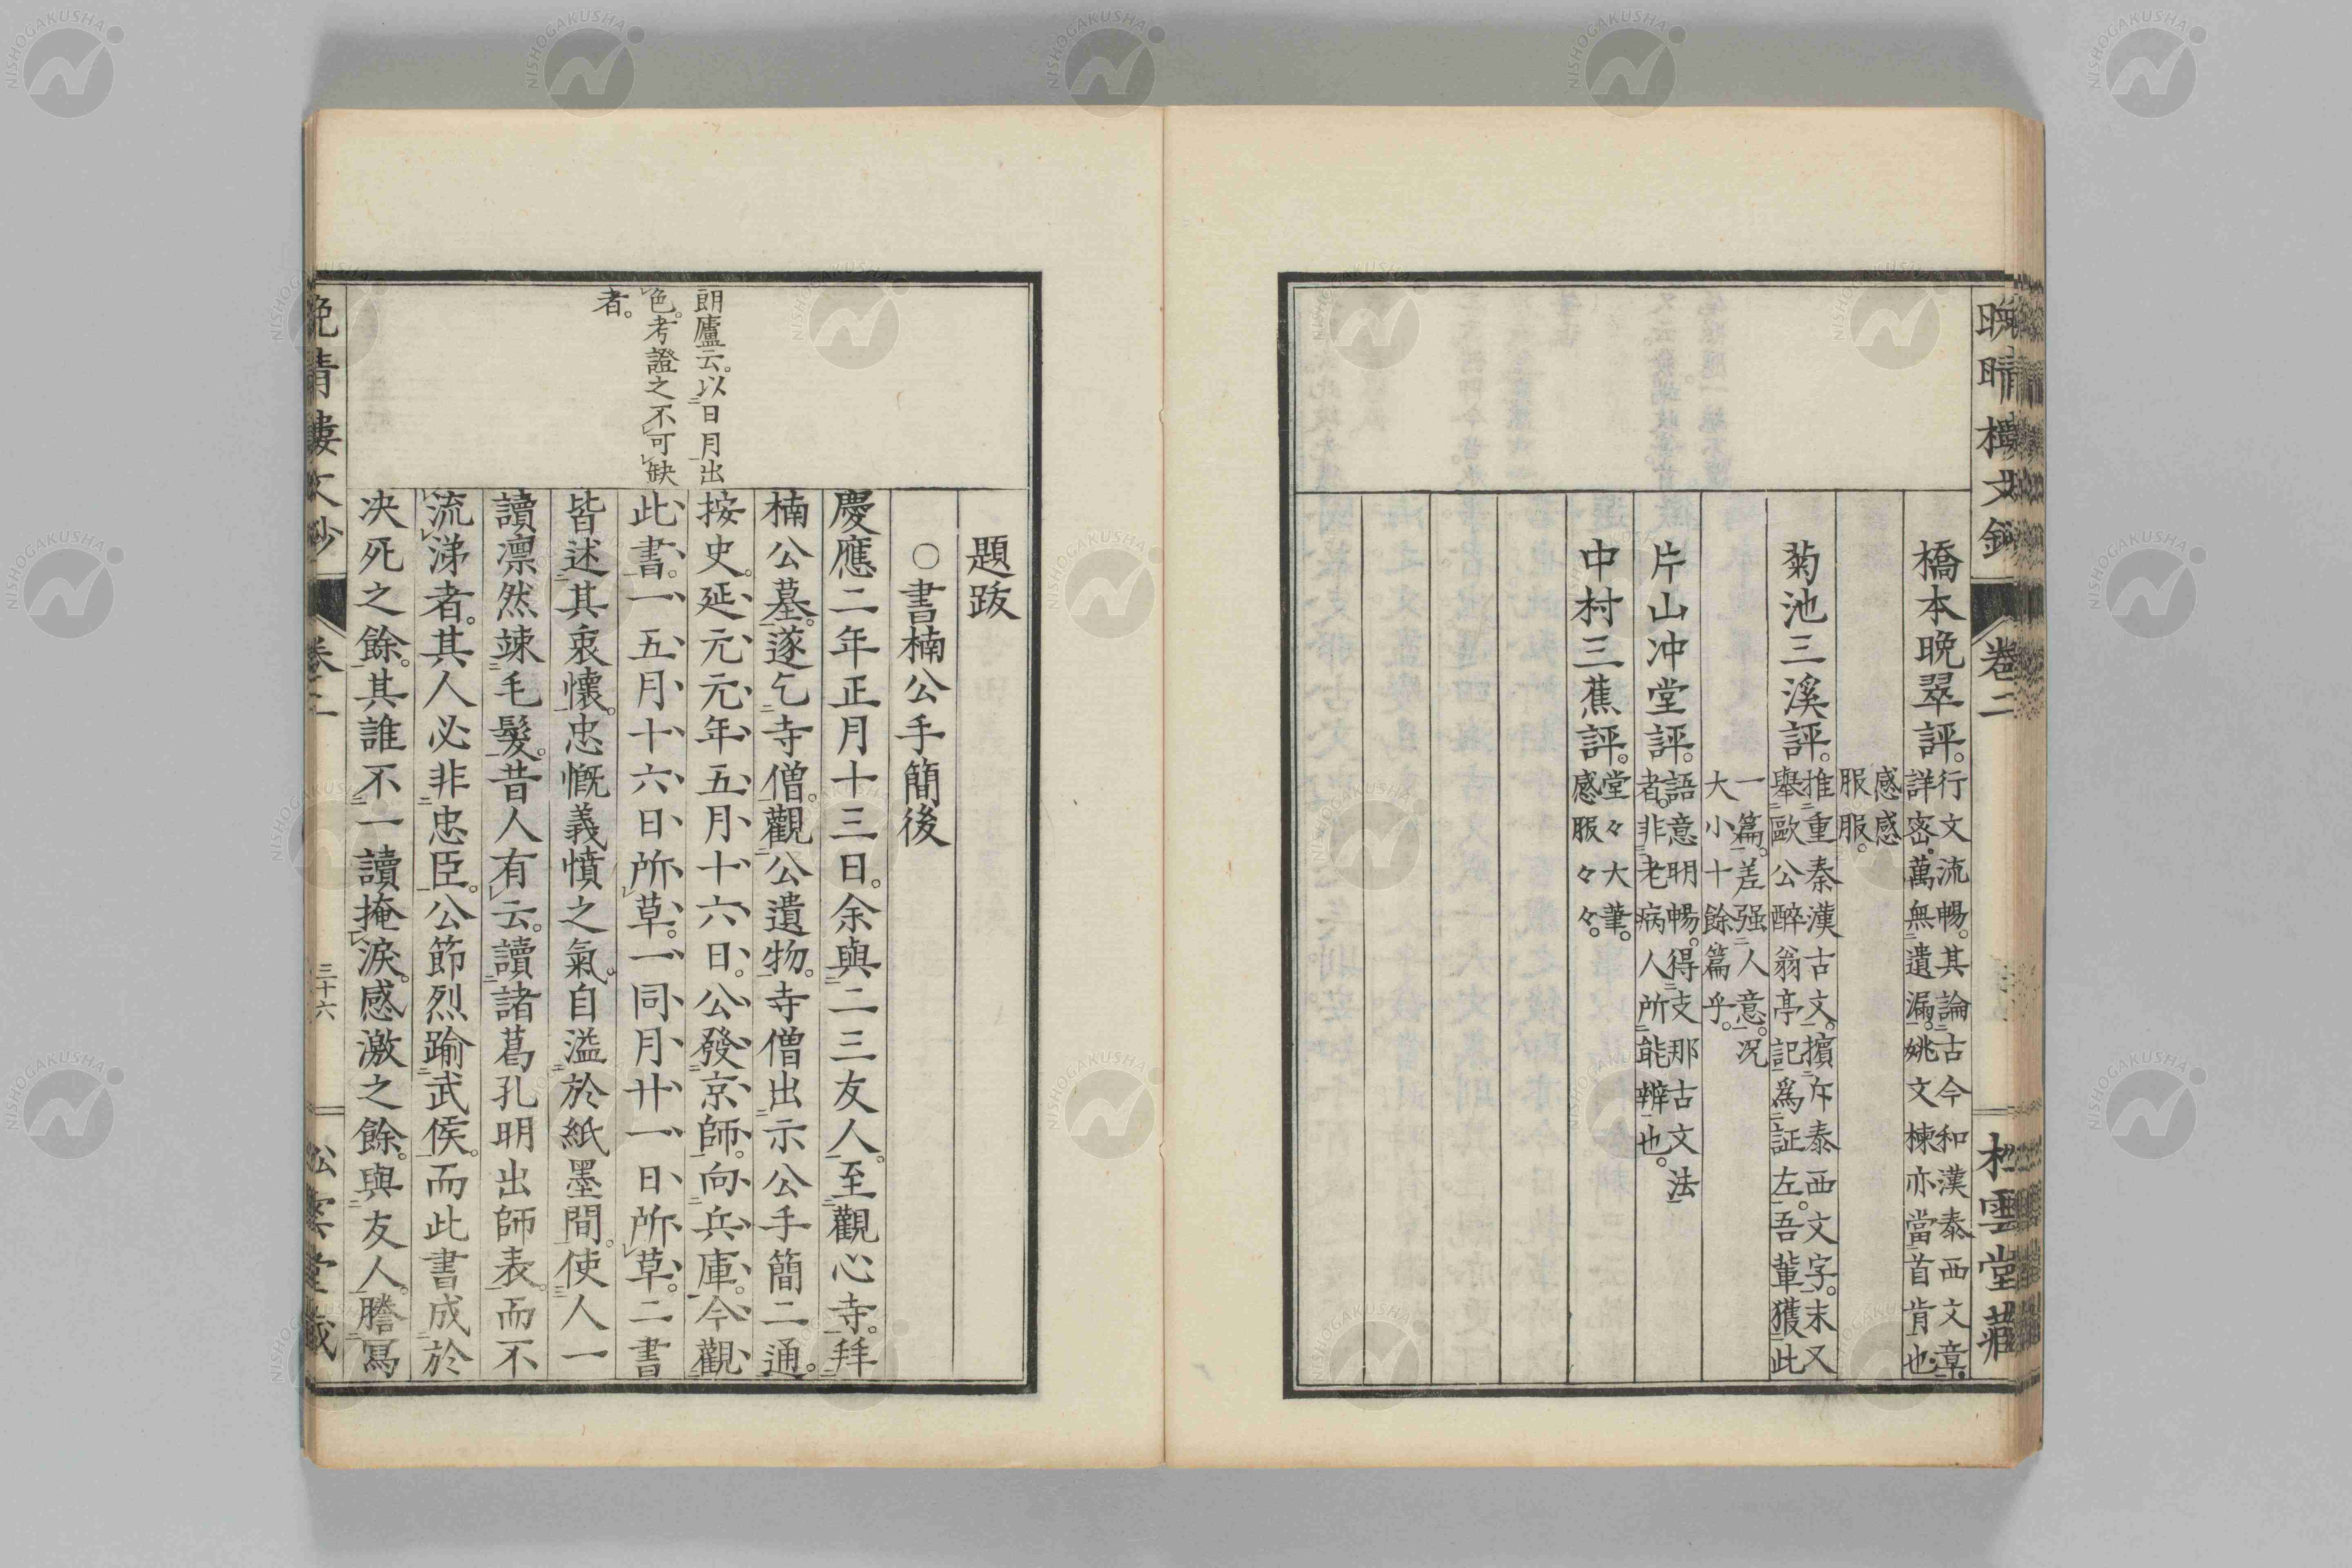 晩晴樓文鈔
卷二
松雲堂藏
橋本晩翠評。行文流暢。其論古今和漢泰西文章。
詳密。萬無遺漏。姚文棟亦當首肯也。
感感
服服。
菊池三溪評。推重秦漢古文。擯斥泰西文字。末又
舉歐公醉翁亭記爲証左。吾輩獲此
一篇。差强人意。况
大小十餘篇乎。
片山冲堂評。語意明暢。得支那古文法
者。非老病人所能辨也。
中村三蕉評。堂々大筆。
感服々々。
題跋
○書楠公手簡後
慶應二年正月十三日。余與二三友人。至觀心寺。拜
楠公墓。遂乞寺僧。觀公遺物。寺僧出示公手簡二通。
按史。延元元年五月十六日。公發京師。向兵庫。今觀
此書。一五月十六日所草。一同月廿一日所草。二書
皆述其衷懷。忠慨義憤之氣。自溢於紙墨間。使人一
讀凛然竦毛髮。昔人有云。讀諸葛孔明出師表。而不
流涕者。其人必非忠臣。公節烈踰武侯。而此書成於
决死之餘。其誰不一讀掩淚。感激之餘。與友人。謄寫
朗廬云。以日月出
色。考證之不可缺
者。
晩晴樓文鈔
卷二
三十六
松雲堂藏